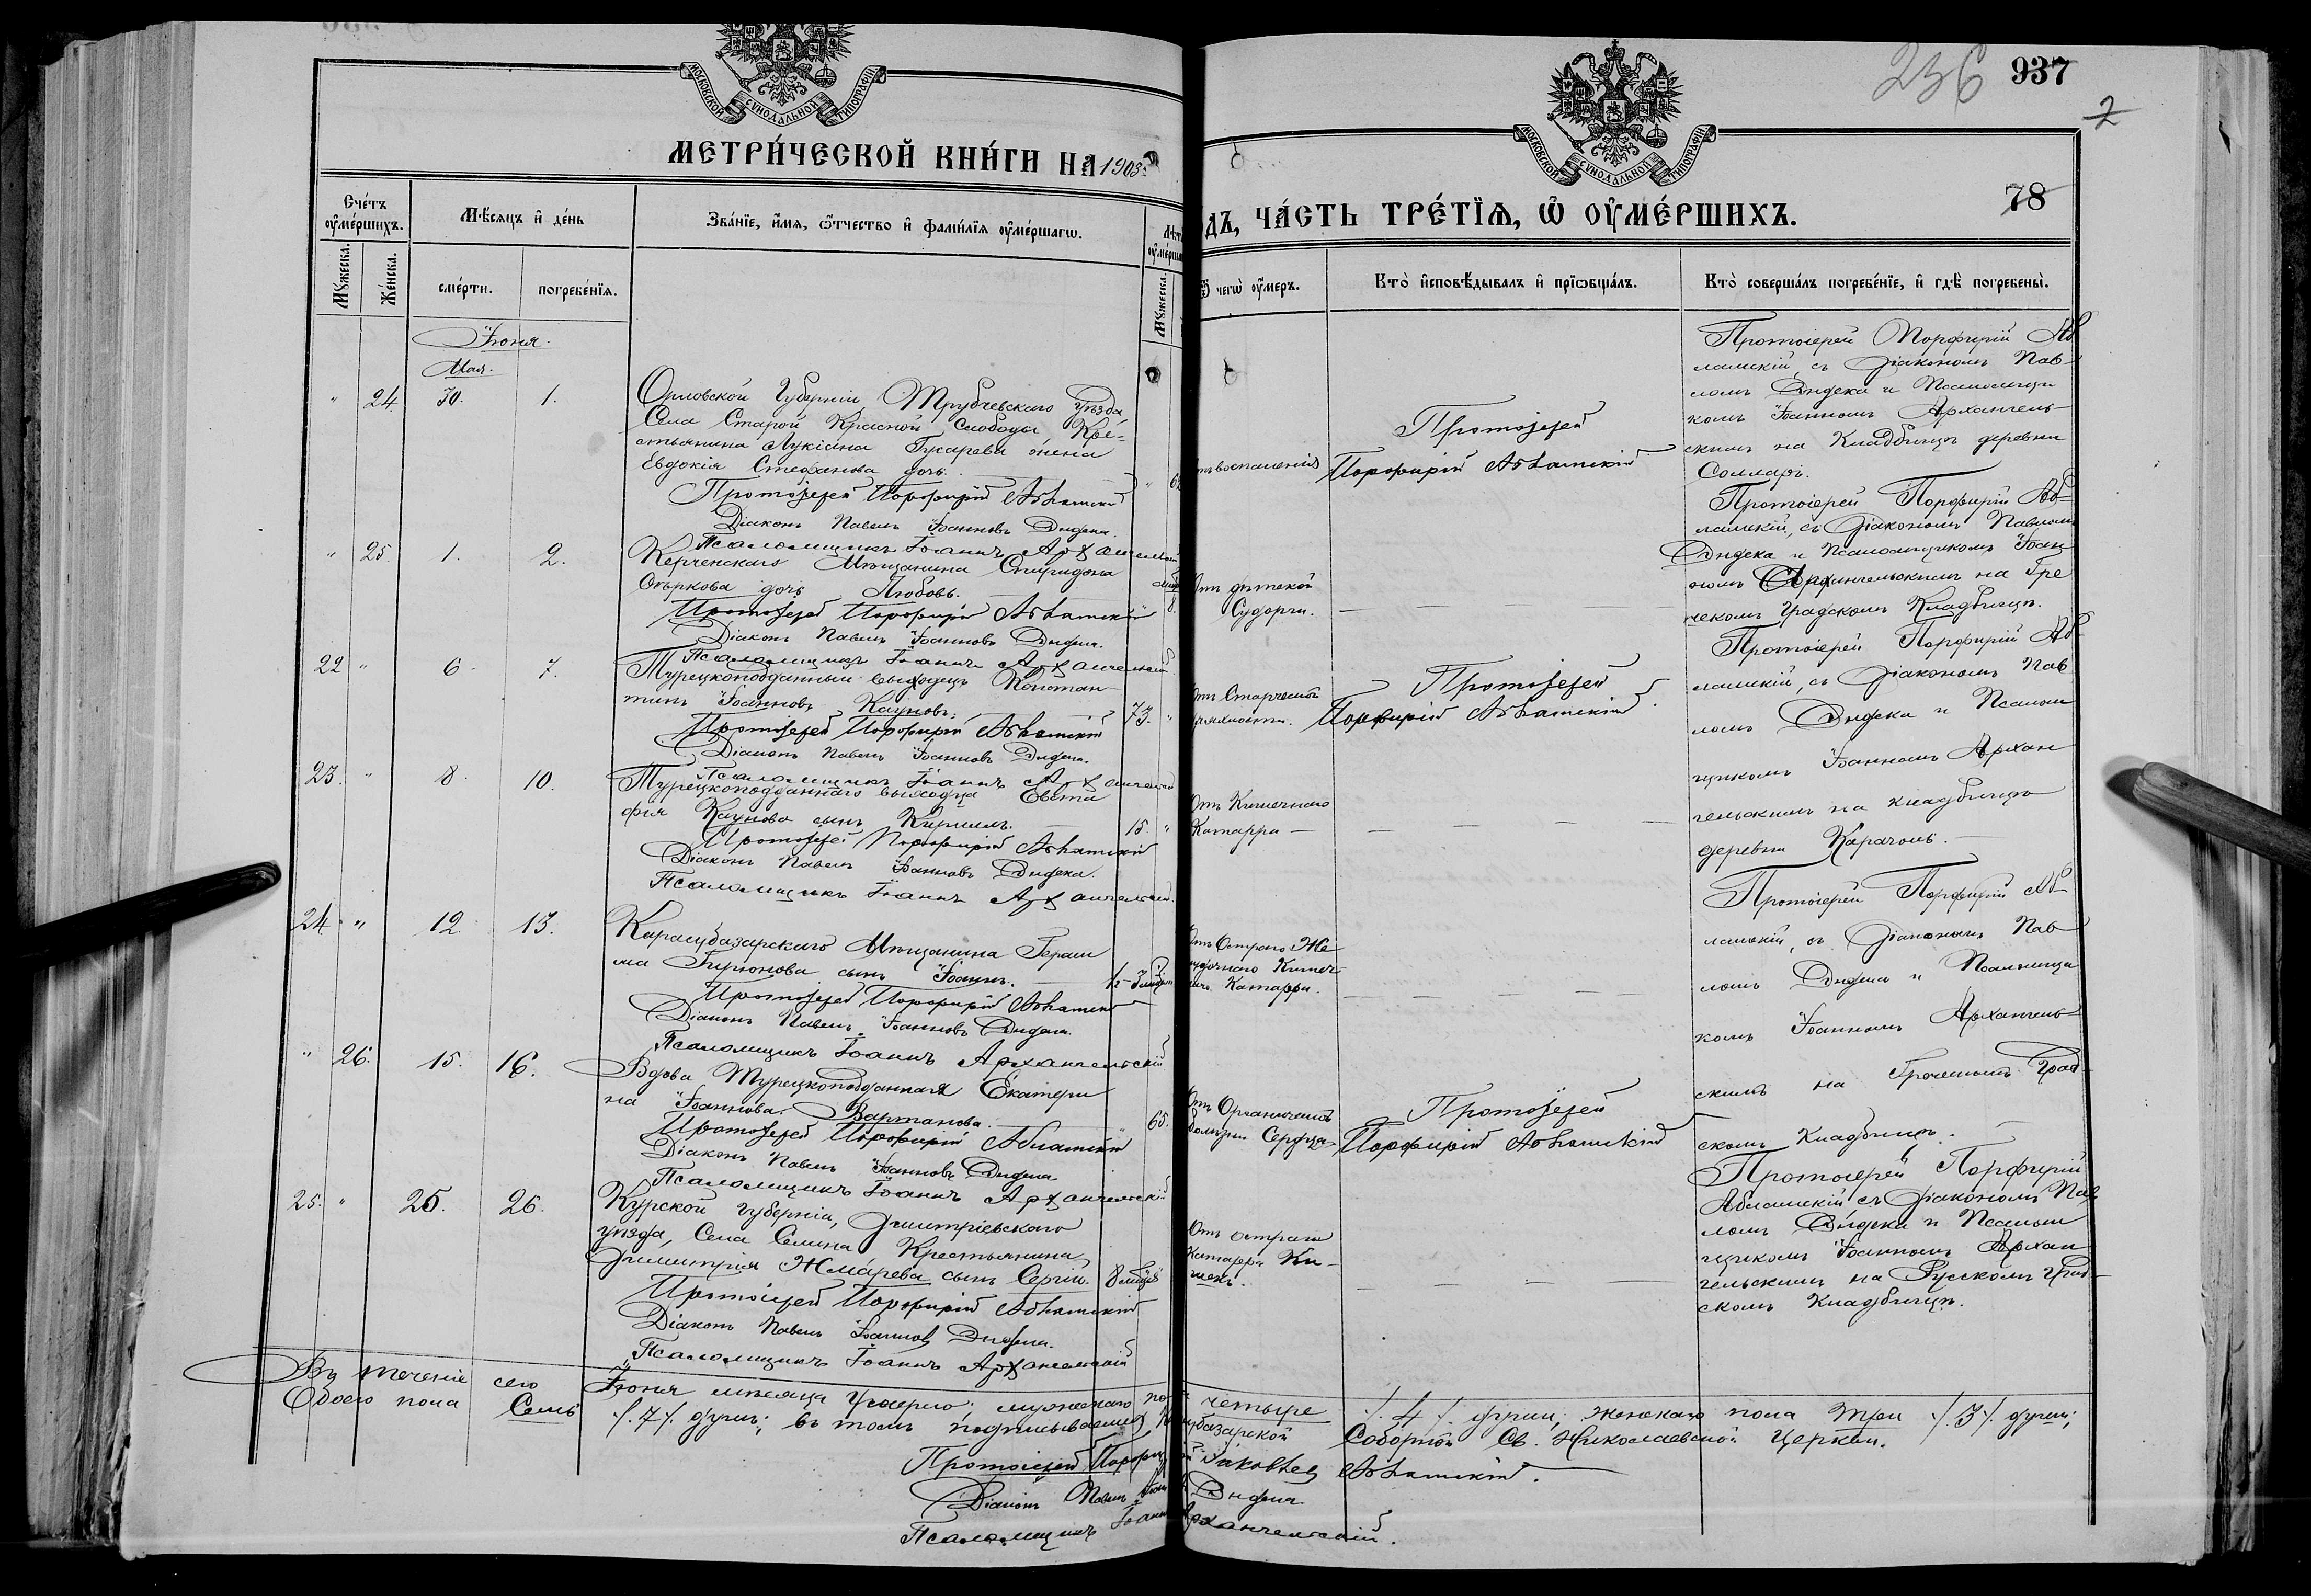 236 937
2
МОСКОВСКОЙ СѴНОДАЛЬНОЙ ТИПОГРАФІИ
МОСКОВСКОЙ СѴНОДАЛЬНОЙ ТИПОГРАФІИ
МЕТРИ́ЧЕСКОЙ КНИ́ГИ НА 1903
ДЪ, ЧА́СТЬ ТРЕ́ТЇѦ, Ѡ҆ ОУ҆МЕ́РШИХЪ.
78
Сче́тъ оу҆ме́ршихъ.
Мꙋ́жеска.
Же́нска.
Мѣ́сяцъ и҆ де́нь
сме́рти.
погребе́нїѧ.
Зва́нїе, и҆́мѧ, ѻ҆́тчество и҆ фами́лїѧ оу҆ме́ршагѡ.
Мꙋ́жеска.
чегѡ̀ оу҆́меръ.
Кто̀ и҆сповѣ́дывалъ и҆ прїѡбща́лъ.
Кто̀ соверша́лъ погребе́нїе, и҆ гдѣ̀ погребены̀.
Іюня.
Мая.
" 24. 30. 1.
Орловской Губерніи, Трубчевскаго Уѣзда
Села Старой Красной Слободы Кре-
стьянина Лукіана Гусарева жена
Евдокія Стефанова дочь.
Протоіерей Порфирій Абламскій
Діаконъ Павелъ Іоанновъ Дидека.
Псаломщикъ Іоаннъ Архангельскій
воспаленія
Протоіерей
Порфирій Абламскій
Протоіерей Порфирій Аб
ламскій, съ Діакономъ Пав-
ломъ Дидека и Псаломщи
комъ Іоанномъ Архангель-
скимъ на Кладбищѣ деревни
Солларъ.
" 25. 1. 2.
Керченскаго Мѣщанина Спиридона
Стыркова дочь Любовь.
Протоіерей Порфирій Абламскій
Діаконъ Павелъ Іоанновъ Дидека.
Псаломщикъ Іоаннъ Архангельскій
8.
Отъ дѣтской
Судорги.
Протоіерей Порфирій Аб-
ламскій, съ Діакономъ Павломъ
Дидека и Псаломщикомъ Іоан
номъ Архангельскимъ на Гре
ческомъ Градскомъ Кладбищѣ.
22 " 6. 7.
Турецкоподданный выходецъ Констан
тинъ Іоанновъ Кауновъ.
73. "
Протоіерей Порфирій Абламскій
Діаконъ Павелъ Іоанновъ Дидека.
Псаломщикъ Іоаннъ Архангельскій
Отъ Старческой
дряхлости.
Протоіерей
Порфирій Абламскій.
Протоіерей Порфирій Аб-
ламскій, съ Діакономъ Пав
ломъ Дидека и Псалом
щикомъ Іоанномъ Архан
гельскимъ на кладбищѣ
деревни Карачоль.
23. " 8. 10.
Турецкоподданнаго выходца Евста
фія Каунова сынъ Кириллъ.
15. "
Протоіерей Порфирій Абламскій
Діаконъ Павелъ Іоанновъ Дидека.
Псаломщикъ Іоаннъ Архангельскій.
Отъ Кишечнаго
Катарра
24. " 12. 13.
Карасубазарскаго Мѣщанина Гераси
ма сынъ Іоаннъ.
Протоіерей Порфирій Абламскій
Діаконъ Павелъ Іоанновъ Дидека.
Псаломщикъ Іоаннъ Архангельскій
Отъ Остраго Же
лудочнаго Кишеч-
Катарра.
Протоіерей Порфирій Аб-
ламскій, съ Діакономъ Пав
ломъ Дидека и Псаломщи
комъ Іоанномъ Архангель-
скимъ на Греческомъ Град-
скомъ Кладбищѣ.
" 26. 15. 16.
Вдова Турецкоподданная Екатери
на Іоаннова Вартанова.
65.
Протоіерей Порфирій Абламскій
Діаконъ Павелъ Іоанновъ Дидека
Псаломщикъ Іоаннъ Архангельскій
Отъ Органической
болѣзни Сердца
Протоіерей
Порфирій Абламскій
25. " 25. 26.
Курской губерніи, Дмитріевскаго
уѣзда, Села Селина Крестьянина
Димитрія Жмарева сынъ Сергій.
Протоіерей Порфирій Абламскій
Діаконъ Павелъ Іоанновъ Дидека.
Псаломщикъ Іоаннъ Архангельскій
Отъ остраго
катарра Ки-
шекъ.
Протоіерей Порфирій
Абламскій съ Діакономъ Пав
ломъ Дидека и Псалом
щикомъ Іоанномъ Архан
гельскимъ на Русскомъ Град-
скомъ Кладбищѣ.
Въ теченіе сего Іюня мѣсяца умерло: мужескаго по четыре /.4/. души, женскаго пола три /.3/. души;
Обоего пола Семь /.7/. душъ; въ томъ подписываемся базарской Соборной Св. Николаевской Церкви.
Протоіерей Порфи Іаковлев Абламскій.
Діаконъ Павелъ Дидека
Псаломщикъ Іоаннъ Архангельскій.